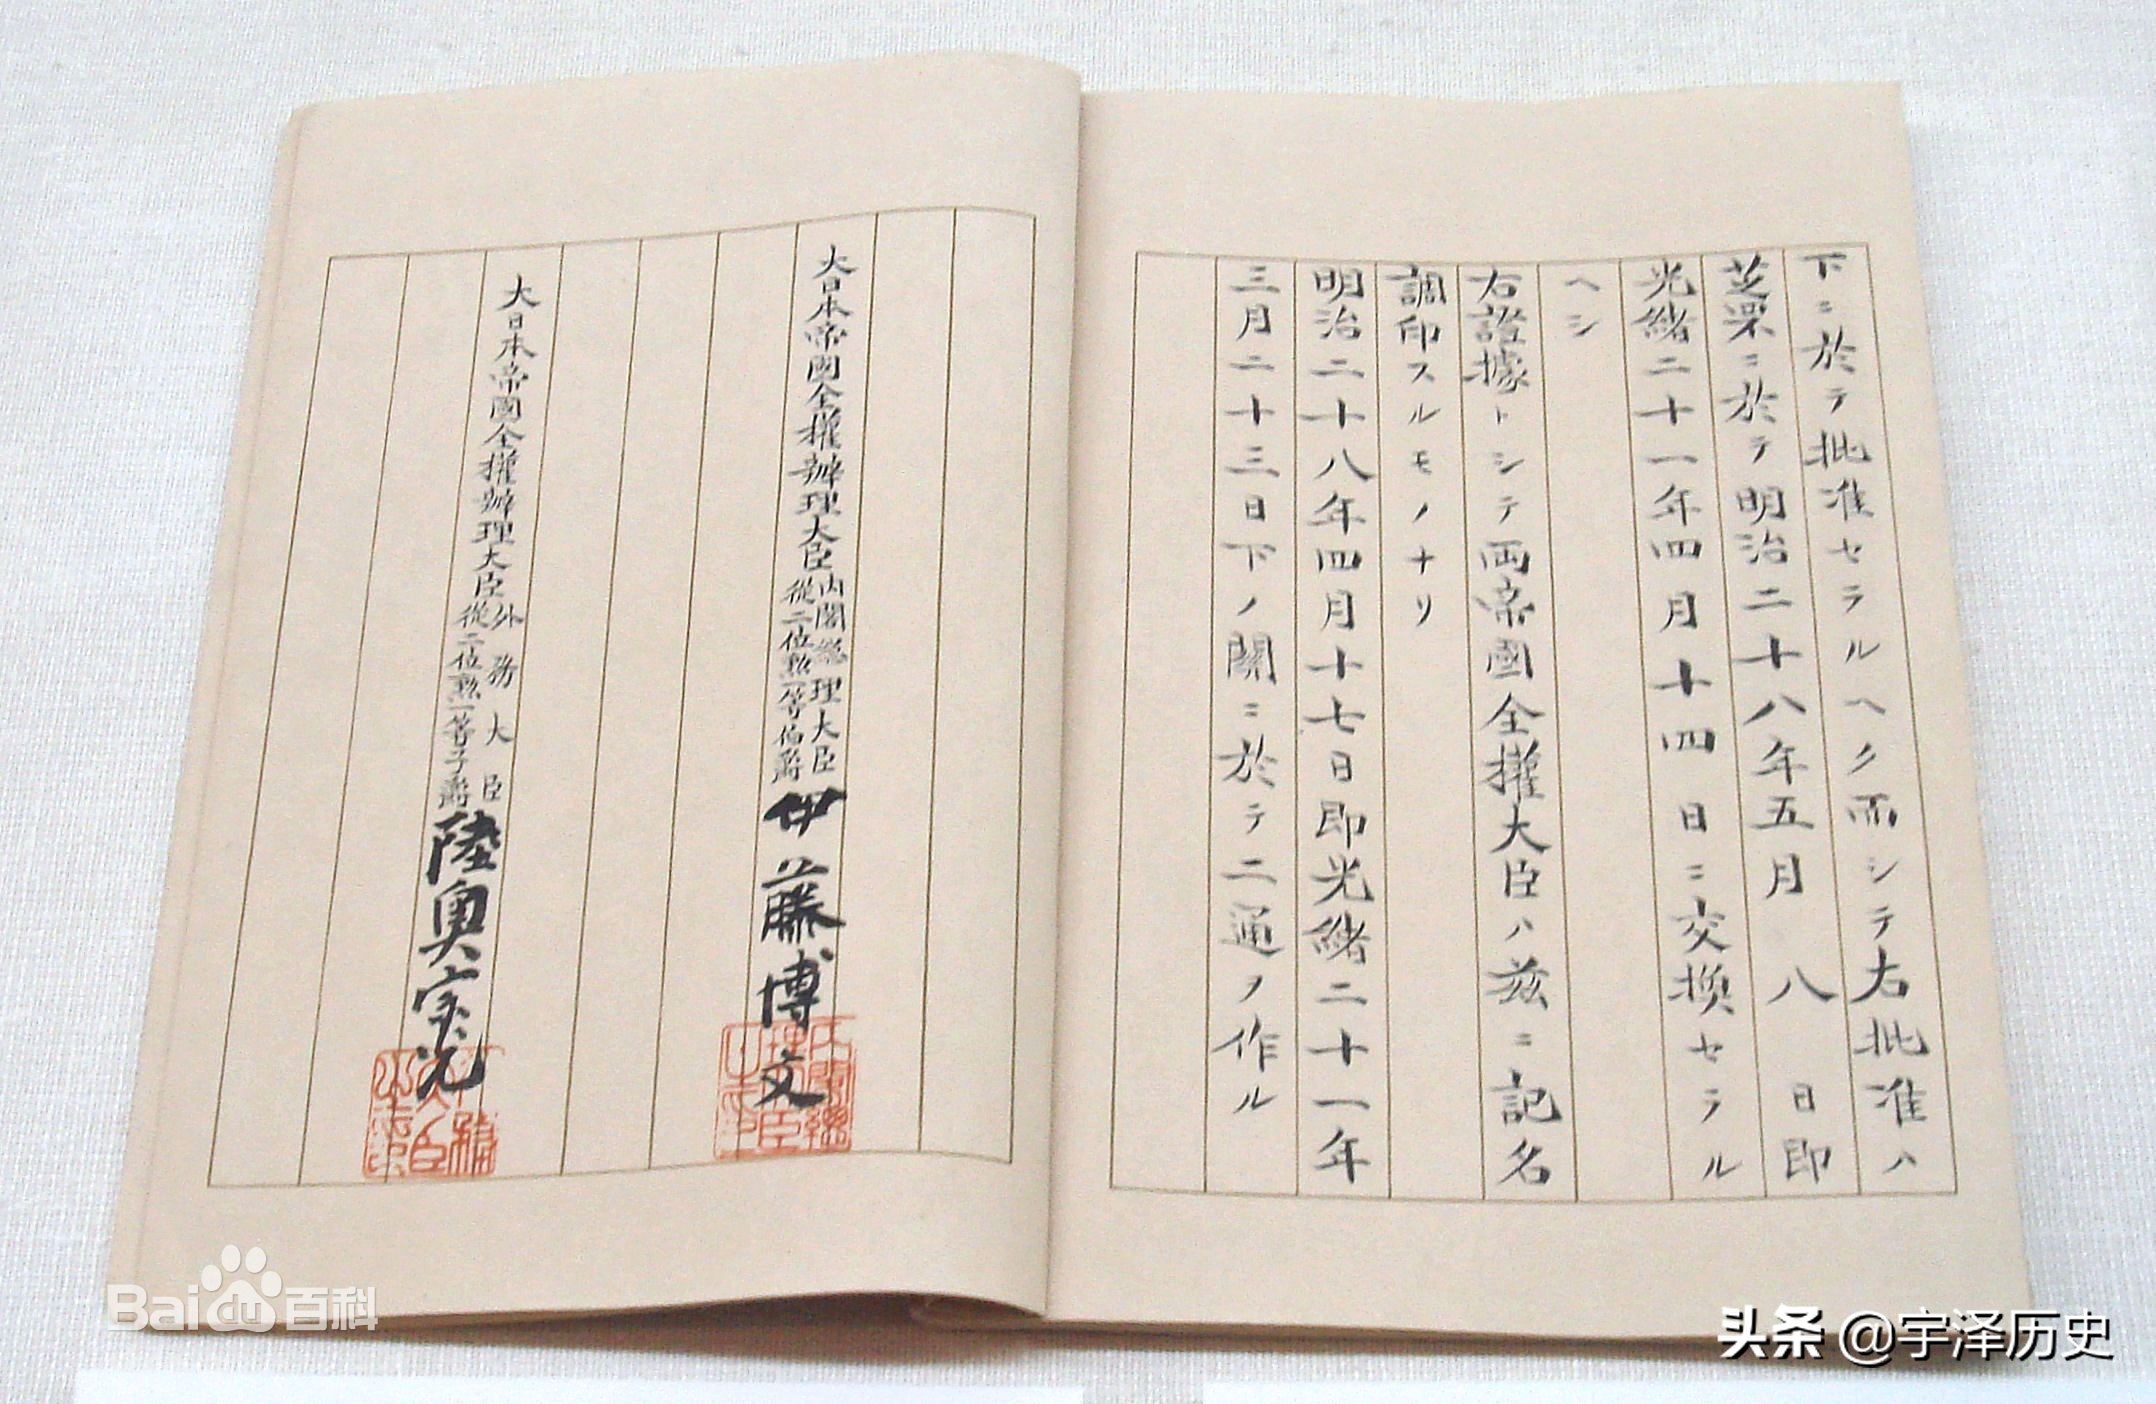 下ニ於テ批准セラルヘク而シテ右批准ハ
芝罘ニ於テ明治二十八年五月八日即
光緒二十一年四月十四日ニ交換セラル
ヘシ
右證據トシテ両帝國全權大臣ハ茲ニ記名
調印スルモノナリ
明治二十八年四月十七日即光緒二十一年
三月二十三日下ノ關ニ於テ二通ヲ作ル
大日本帝國全權辦理大臣
內閣總理大臣
從二位勲一等伯爵
伊藤博文
大日本帝國全權辦理大臣
外務大臣
從二位勲一等子爵
陸奥宗光
Bai百科
头条 @宇泽历史